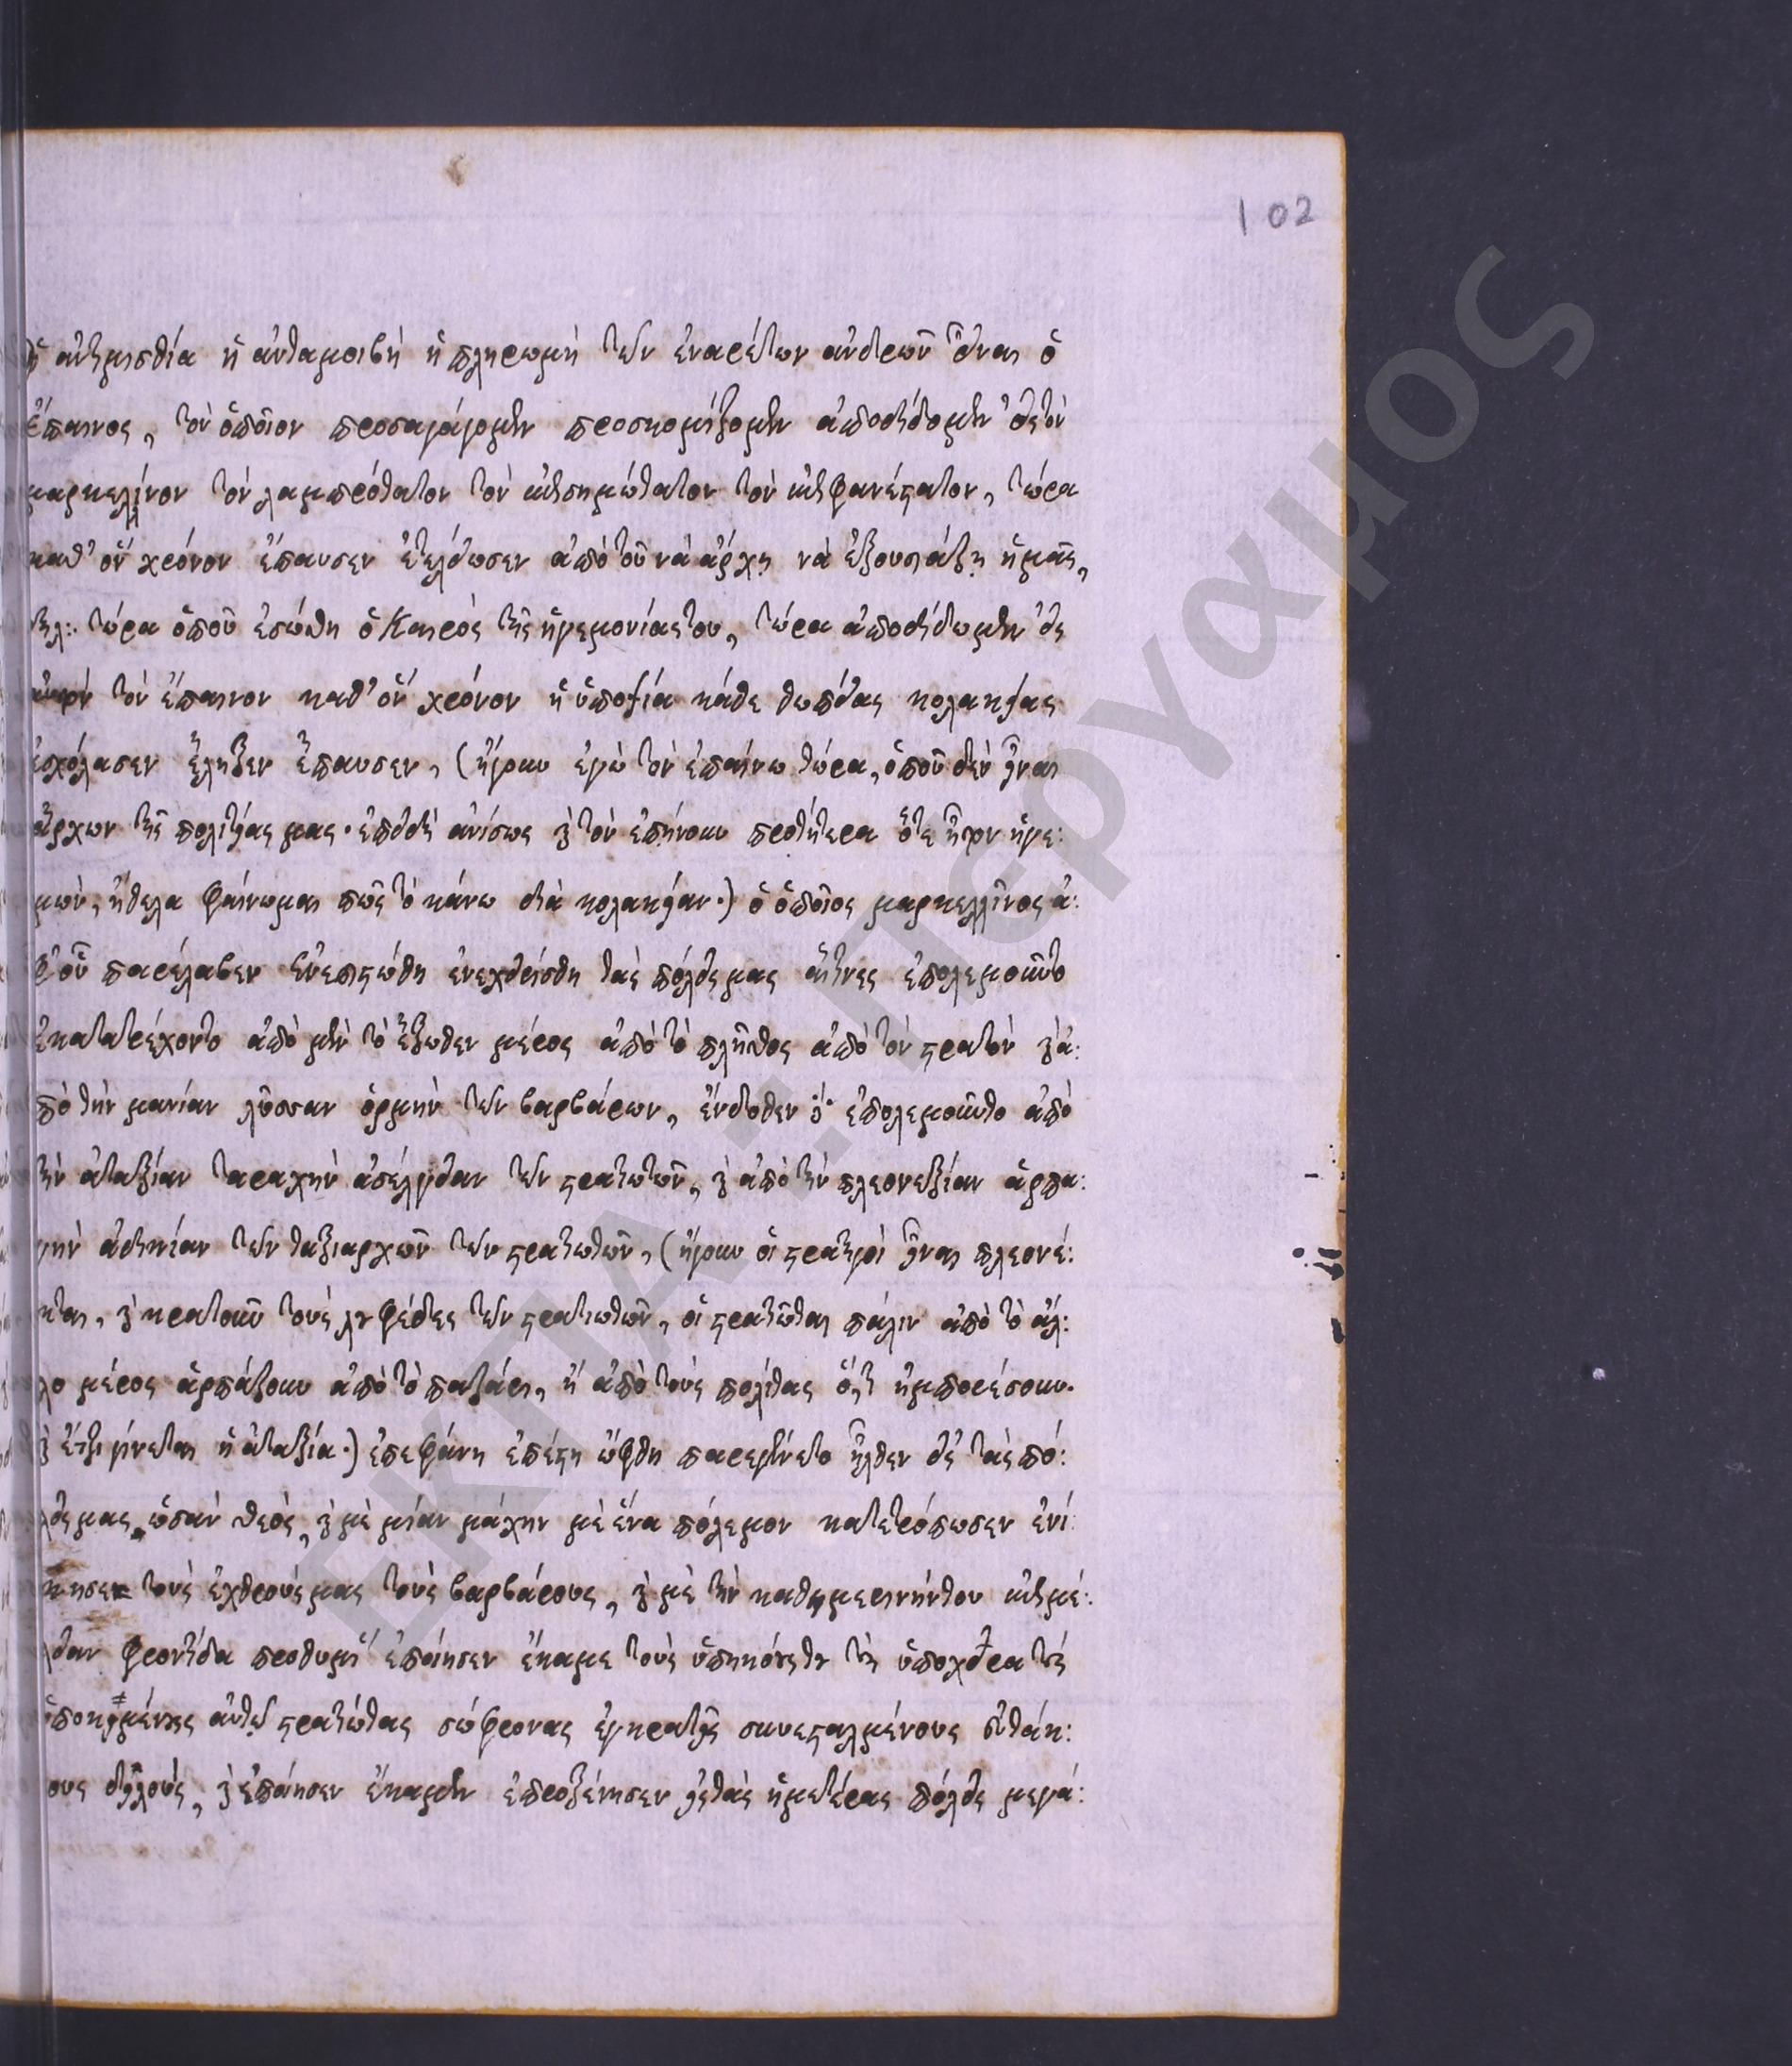 102
ἡ ἀντιμισθία ἡ ἀνταμοιβὴ ἡ πληρωμὴ τῶν ἐναρέτων ἀνδρῶν εἶναι ὁ
ἔπαινος, τὸν ὁποῖον προσαγάγομεν προσκομίζομεν ἀποδίδομεν εἰς τὸν
μαρκελλίνον τὸν λαμπρότατον τὸν ἐπισημώτατον τὸν ἐπιφανέστατον, τώρα
καθ' ὃν χρόνον ἔπαυσεν ἐτελείωσεν ἀπὸ τοῦ νὰ ἄρχῃ νὰ ἐξουσιάζῃ ἡμᾶς,
τώρα ὁποῦ ἐσώθη ὁ Καιρὸς τῆς ἡγεμονίας του, τώρα ἀποδίδωμεν εἰς
τὸν ἔπαινον καθ' ὃν χρόνον ἡ ὑποψία κάθε θωπείας κολακείας
ἐσχόλασεν ἔληξεν ἔπαυσεν, (ἤγουν ἐγὼ τὸν ἐπαίνω τώρα, ὁποῦ δὲν εἶναι
ἄρχων τῆς πολιτείας μας· ἐπειδὴ ἀνίσως καὶ τὸν ἐπήνουν προτήτερα ὅτε ἦτον ἡγε:
μών, ἤθελα φαίνωμαι πῶς τὸ κάνω διὰ κολακείαν·) ὁ ὁποῖος μαρκελλῖνος ἀ:
φ' οὗ παρέλαβεν ἐνεπιστώθη ἐνεχειρίσθη τὰς πόλεις μας αἵτινες ἐπολεμοῦντο
ἐκατατρέχοντο ἀπὸ μὲν τὸ ἔξωθεν μέρος ἀπὸ τὸ πλῆθος ἀπὸ τὸν στρατὸν καὶ ἀ:
πὸ τὴν μανίαν λύσσαν ὁρμὴν τῶν βαρβάρων, ἔνδοθεν δὲ ἐπολεμοῦντο ἀπὸ
τὴν ἀταξίαν ταραχὴν ἀσέλγειαν τῶν στρατιωτῶν, καὶ ἀπὸ τὴν πλεονεξίαν ἁρπα:
γὴν ἀδικίαν τῶν ταξιαρχῶν τῶν στρατιωτῶν, (ἤγουν οἱ στρατηγοὶ εἶναι πλεονέ:
κται, καὶ κρατοῦν τοὺς λουφέδες τῶν στρατιωτῶν, οἱ στρατιῶται πάλιν ἀπὸ τὸ ἄλ:
λο μέρος ἁρπάζουν ἀπὸ τὸ παζάρι, ἢ ἀπὸ τοὺς πολίτας ὅ,τι ἠμπορέσουν.
καὶ ἔτζι γίνεται ἡ ἀταξία·) ἐπεφάνη ἐπέστη ὤφθη παρεγίνετο ἦλθεν εἰς τὰς πό:
λεις μας, ὡσὰν θεὸς, καὶ μὲ μίαν μάχην μὲ ἕνα πόλεμον κατετρόπωσεν ἐνί:
κησεν τοὺς ἐχθρούς μας τοὺς βαρβάρους, καὶ μὲ τὴν καθημερινήν του ἐπιμέ:
λειαν φροντίδα προθυμί ἐποίησεν ἔκαμε τοὺς ὑπηκόους τῇ ὑποχείρα
ὑποκειμένους αὐτῷ στρατιώτας σώφρονας ἐγκρατεῖς συνεσταλμένους εὐτάκ:
τους δειλοὺς, καὶ ἐποίησεν ἔκαμεν ἐπροξένησεν εἰς τὰς ἡμετέρας πόλεις μεγά:
ΕΚΠΑ: Πέργαμος